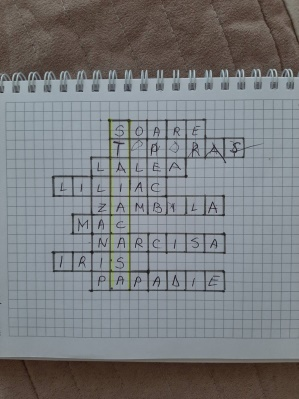 SOARE
TOPORAȘ
LALEA
LILIAC
ZAMBILA
MAC
NARCISA
IRIS
PAPADIE